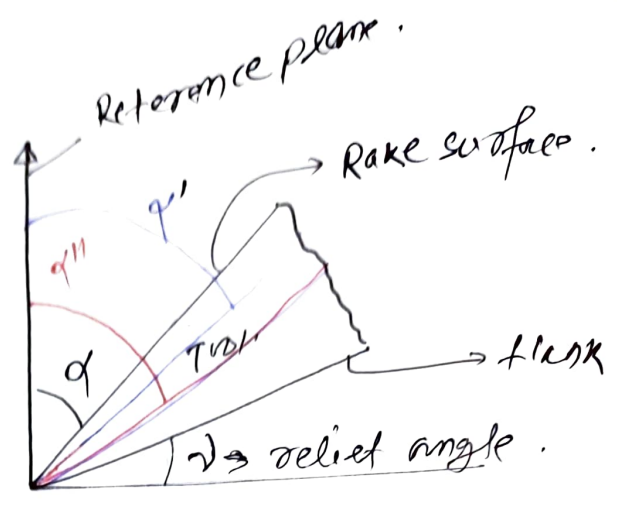 Reference plane.
Rake surface.
α'
α"
α
Tool
flank
ν → relief angle.